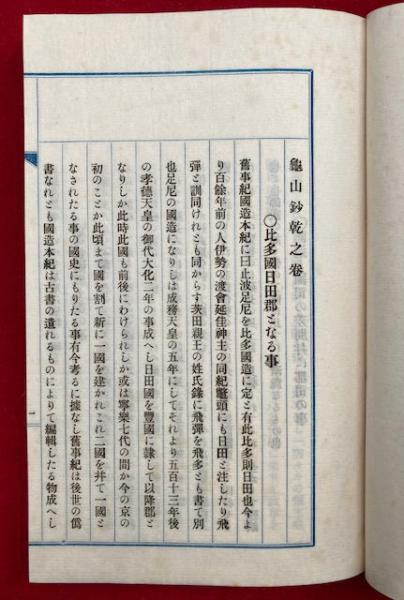 龜山鈔乾之卷
〇比多國日田郡となる事
舊事紀國造本紀に曰止波足尼を比多國造に定と有此比多則日田也今よ
り百餘年前の人伊勢の渡會延佳神主の同紀鼇頭にも日田と注したり飛
彈と訓同けれとも同からす茨田親王の姓氏錄に飛彈を飛多とも書て別
也足尼の國造になりしは成務天皇の五年にしてそれより五百十三年後
の孝德天皇の御代大化二年の事成へし日田國を豐國に隷して以降郡と
なりしか此時此國も前後にわけられしか或は寧樂七代の間か今の京の
初のことか此頃まて國を割て新に一國を建かれこれ二國を并て一國と
なされたる事の國史にもりたる事有今考るに據なし舊事紀は後世の僞
書なれとも國造本紀は古書の遺れるものによりて編輯したる物成へし
一